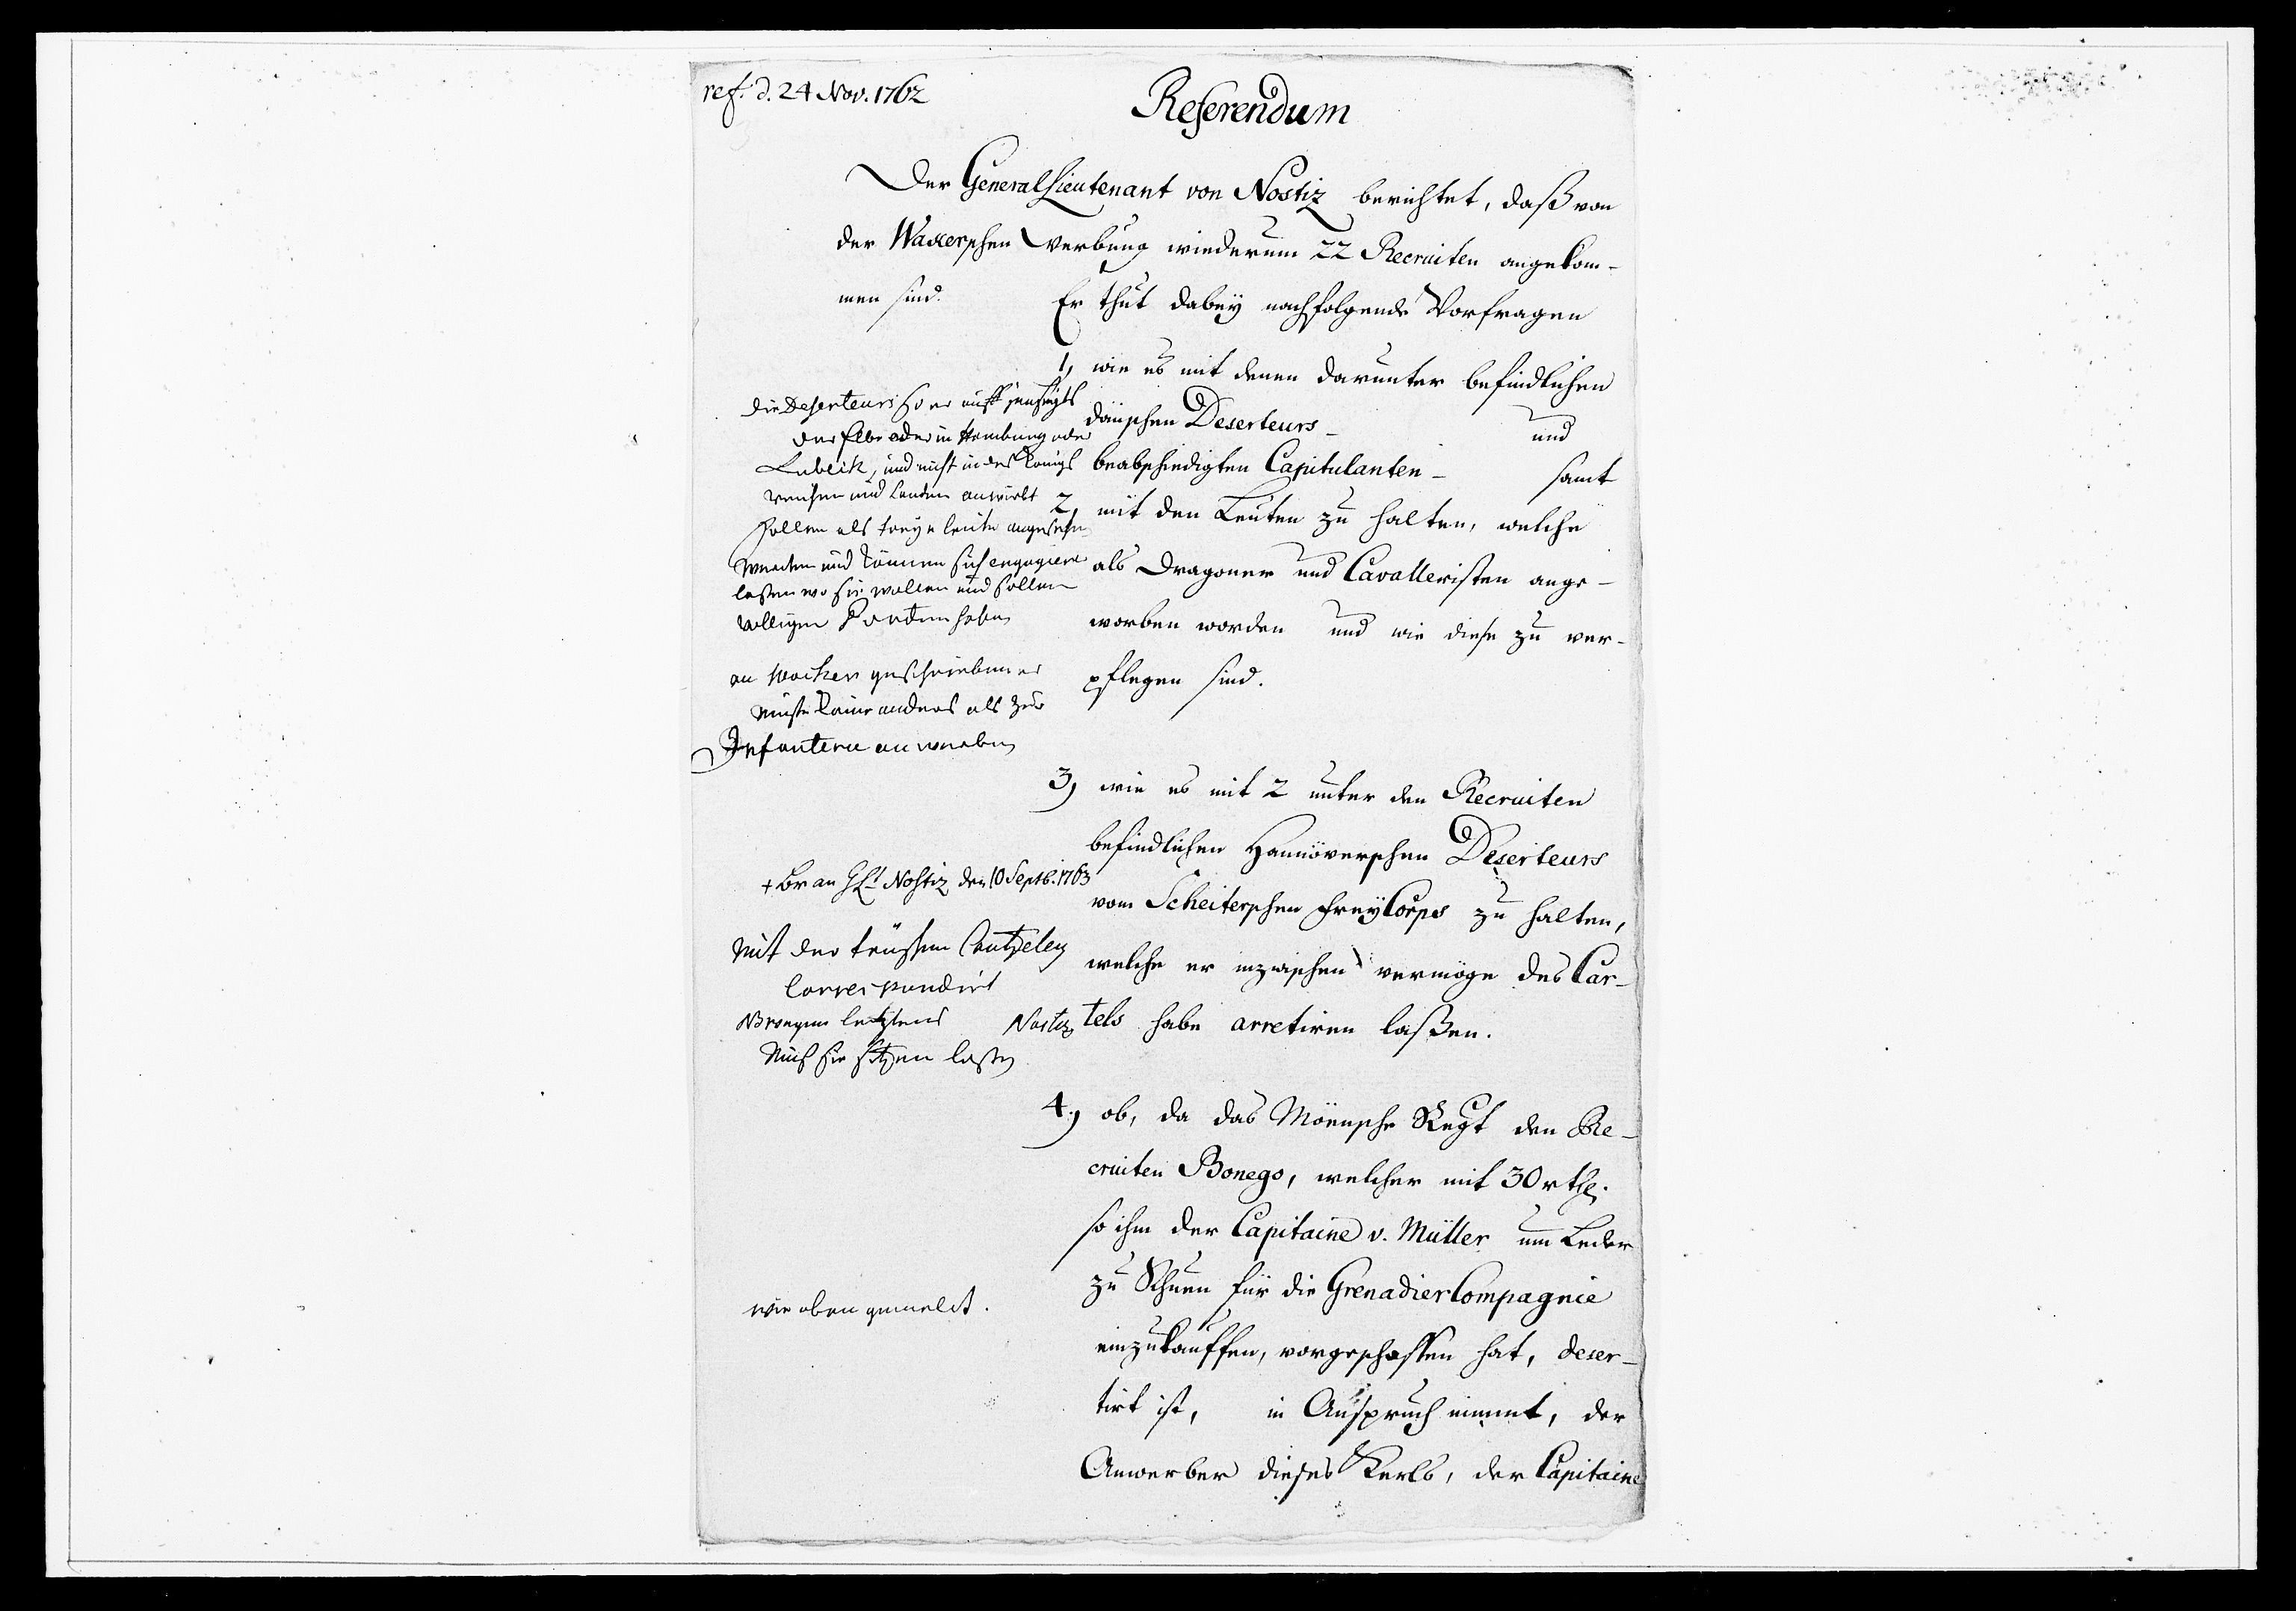 ref. d. 24 Nov. 1762
Referendum
Der General Lieutenant von Nostiz berichtet, daß von
der Waxerschen Werbung wiederum 22 Recruiten angekom-
men sind. Er thut dabeÿ nachfolgende Vorfragen
1, wie es mit denen darunter befindlichen
dänischen Deserteurs- und
beabschiedigten Capitulanten- samt
2, mit den Leuten zu halten, welche
als Dragoner und Cavalleristen ange-
worben worden und wie diese zu ver-
pflegen sind.
die Deserteurs so er auff jenseits
der Elbe oder in Hamburg oder
Lubeck, und nicht in des Königs
Reichen und Landen anwirbt
sollen als freye leute angesehen
werden und können sich engagiren
laßen wo sie wollen und sollen
völligen Pardon haben
an Wacker geschrieben er
müste keine anders als zur
Infanterie anwerben
3) wie es mit 2 unter den Recruiten
befindlichen Hannöverschen Deserteurs
vom Scheiterschen FreÿCorps zu halten,
welche er inzwischen vermöge des Car-
tels habe arretiren laßen.
+ Br an GLt Nostiz den 10 Septb. 1763
mit der Cantzeley
correspondirt
NB wegen letztens Nostiz
muß sie sitzen laßen
4.) ob, da das Möensche Regt den Re-
cruiten Bonego, welcher mit 30 rthl.
so ihm der Capitaine v. Müller um Leder
zu Schuen für die Grenadier Compagnie
einzukauffen, vorgeschossen hat, deser-
tirt ist, in Anspruch nimmt, der
Anwerber dieses Kerls, der Capitaine
wie oben gemeldt.